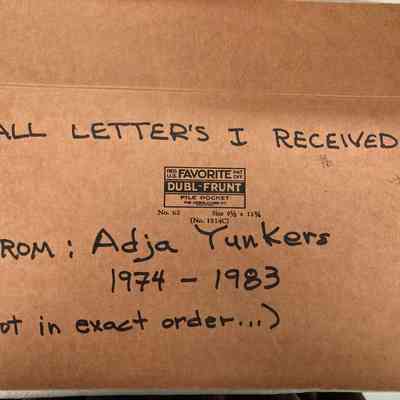 ALL LETTER'S I RECEIVED
REG. FAVORITE PAT.
U.S. OFF.
DUBL-FRUNT
FILE POCKET
No. 62 Size 9½ x 11¾
(No. 1514C)
ROM: Adja Yunkers
1974 - 1983
ot in exact order...)